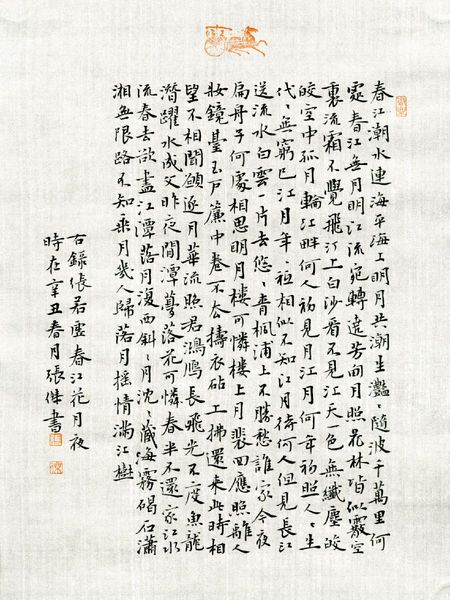 春江潮水連海平海上明月共潮生灩〻隨波千萬里何
處春江無月明江流宛轉遶芳甸月照花林皆似霰空
裏流霜不覺飛汀上白沙看不見江天一色無纖塵皎
皎空中孤月輪江畔何人初見月江月何年初照人〻生
代〻無窮已江月年〻祗相似不知江月待何人但見長江
送流水白雲一片去悠〻青楓浦上不勝愁誰家今夜
扁舟子何處相思明月樓可憐樓上月裴回應照離人
妝鏡臺玉戶簾中卷不去擣衣砧上拂還來此時相
望不相聞願逐月華流照君鴻鴈長飛光不度魚龍
潛躍水成文昨夜閒潭夢落花可憐春半不還家江水
流春去欲盡江潭落月復西斜〻月沈〻藏海霧碣石瀟
湘無限路不知乘月幾人歸落月搖情滿江樹
右錄張若虛春江花月夜
時在辛丑春月張傑書